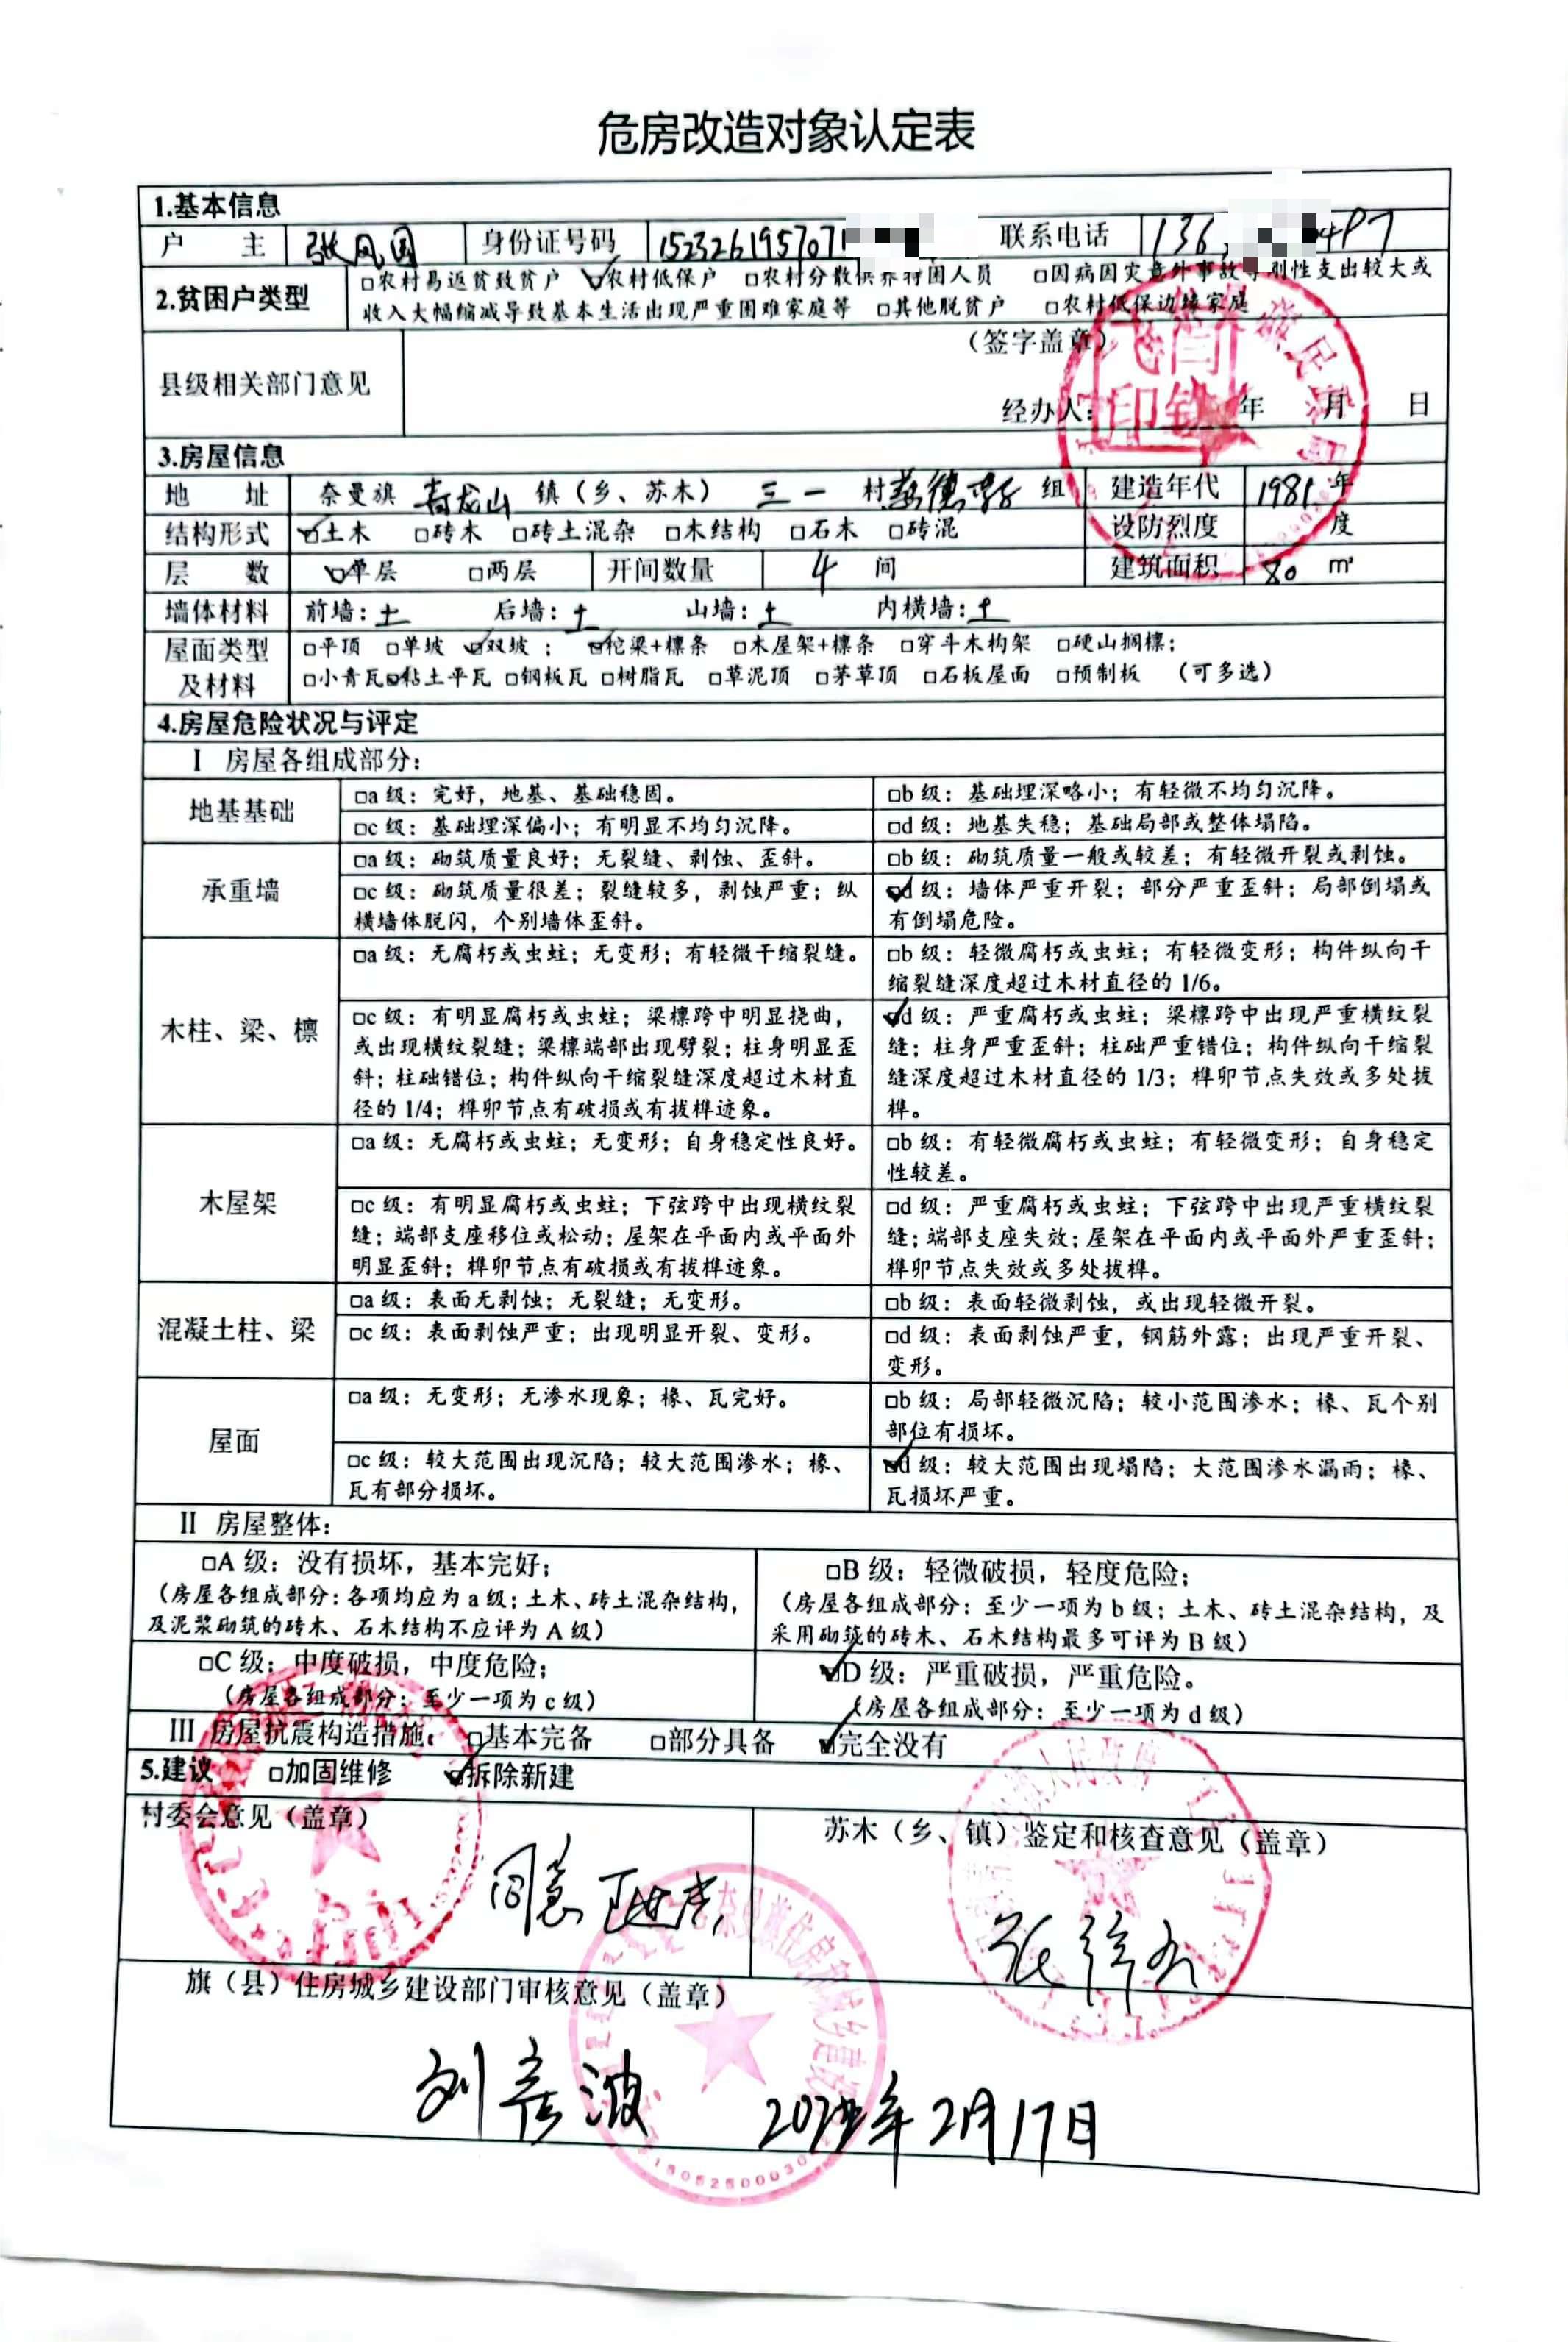 危房改造对象认定表
1.基本信息
户 主 张凤国 身份证号码 1523261957071 联系电话 136
2.贫困户类型 □农村易返贫致贫户 ☑农村低保户 □农村分散供养特困人员 □因病因灾意外事故等刚性支出较大或
收入大幅缩减导致基本生活出现严重困难家庭等 □其他脱贫户 □农村低保边缘家庭
县级相关部门意见 (签字盖章)
经办人: 年 月 日
3.房屋信息
地 址 奈曼旗 青龙山 镇(乡、苏木) 三一 村 组 建造年代 1981年
结构形式 ☑土木 □砖木 □砖土混杂 □木结构 □石木 □砖混 设防烈度 度
层 数 ☑单层 □两层 开间数量 4 间 建筑面积 80 ㎡
墙体材料 前墙:土 后墙:土 山墙:土 内横墙:土
屋面类型 □平顶 □单坡 ☑双坡 ; ☑柁梁+檩条 □木屋架+檩条 □穿斗木构架 □硬山搁檩;
及材料 □小青瓦 ☑粘土平瓦 □钢板瓦 □树脂瓦 □草泥顶 □茅草顶 □石板屋面 □预制板 (可多选)
4.房屋危险状况与评定
Ⅰ 房屋各组成部分:
地基基础 □a 级:完好,地基、基础稳固。 □b 级:基础埋深略小;有轻微不均匀沉降。
□c 级:基础埋深偏小;有明显不均匀沉降。 □d 级:地基失稳;基础局部或整体塌陷。
承重墙 □a 级:砌筑质量良好;无裂缝、剥蚀、歪斜。 □b 级:砌筑质量一般或较差;有轻微开裂或剥蚀。
□c 级:砌筑质量很差;裂缝较多,剥蚀严重;纵
横墙体脱闪,个别墙体歪斜。
☑d 级:墙体严重开裂;部分严重歪斜;局部倒塌或
有倒塌危险。
木柱、梁、檩 □a 级:无腐朽或虫蛀;无变形;有轻微干缩裂缝。
□b 级:轻微腐朽或虫蛀;有轻微变形;构件纵向干
缩裂缝深度超过木材直径的 1/6。
□c 级:有明显腐朽或虫蛀;梁檩跨中明显挠曲,
或出现横纹裂缝;梁檩端部出现劈裂;柱身明显歪
斜;柱础错位;构件纵向干缩裂缝深度超过木材直
径的 1/4;榫卯节点有破损或有拔榫迹象。
☑d 级:严重腐朽或虫蛀;梁檩跨中出现严重横纹裂
缝;柱身严重歪斜;柱础严重错位;构件纵向干缩裂
缝深度超过木材直径的 1/3;榫卯节点失效或多处拔
榫。
木屋架 □a 级:无腐朽或虫蛀;无变形;自身稳定性良好。
□b 级:有轻微腐朽或虫蛀;有轻微变形;自身稳定
性较差。
□c 级:有明显腐朽或虫蛀;下弦跨中出现横纹裂
缝;端部支座移位或松动;屋架在平面内或平面外
明显歪斜;榫卯节点有破损或有拔榫迹象。
□d 级:严重腐朽或虫蛀;下弦跨中出现严重横纹裂
缝;端部支座失效;屋架在平面内或平面外严重歪斜;
榫卯节点失效或多处拔榫。
混凝土柱、梁 □a 级:表面无剥蚀;无裂缝;无变形。 □b 级:表面轻微剥蚀,或出现轻微开裂。
□c 级:表面剥蚀严重;出现明显开裂、变形。
□d 级:表面剥蚀严重,钢筋外露;出现严重开裂、
变形。
屋面 □a 级:无变形;无渗水现象;椽、瓦完好。
□b 级:局部轻微沉陷;较小范围渗水;椽、瓦个别
部位有损坏。
□c 级:较大范围出现沉陷;较大范围渗水;椽、
瓦有部分损坏。
☑d 级:较大范围出现塌陷;大范围渗水漏雨;椽、
瓦损坏严重。
Ⅱ 房屋整体:
□A 级:没有损坏,基本完好;
(房屋各组成部分:各项均应为 a 级;土木、砖土混杂结构,
及泥浆砌筑的砖木、石木结构不应评为 A 级)
□B 级:轻微破损,轻度危险;
(房屋各组成部分:至少一项为 b 级;土木、砖土混杂结构,及
采用砌筑的砖木、石木结构最多可评为 B 级)
□C 级:中度破损,中度危险;
(房屋各组成部分:至少一项为 c 级)
☑D 级:严重破损,严重危险。
(房屋各组成部分:至少一项为 d 级)
Ⅲ 房屋抗震构造措施: □基本完备 □部分具备 ☑完全没有
5.建议 □加固维修 ☑拆除新建
村委会意见(盖章)
同意
苏木(乡、镇)鉴定和核查意见(盖章)
旗(县)住房城乡建设部门审核意见(盖章)
刘彦波 2月17日